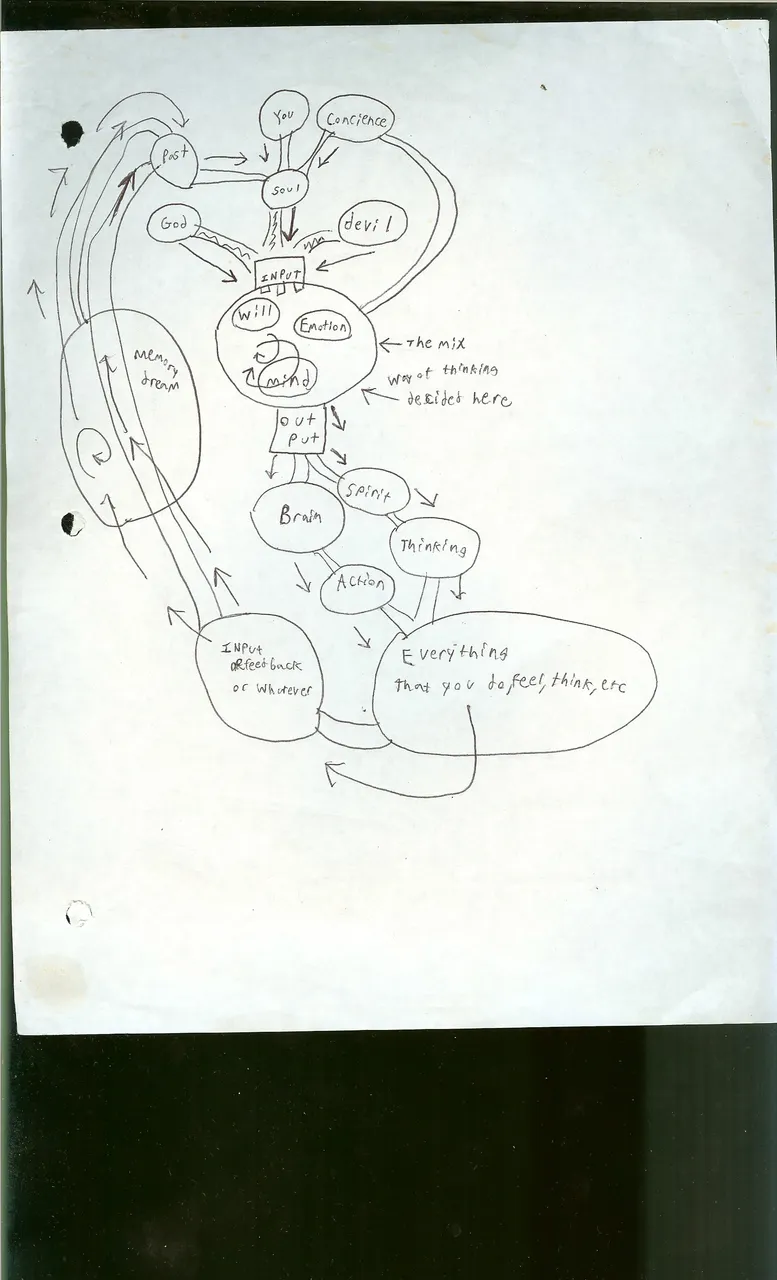 You
Concience
Past
Soul
God
devil
INPUT
Will
Emotion
mind
The mix
way of thinking
decided here
memory
dream
out
put
Spirit
Brain
Thinking
Action
INPUT
or feedback
or whatever
Everything
that you do, feel, think, etc